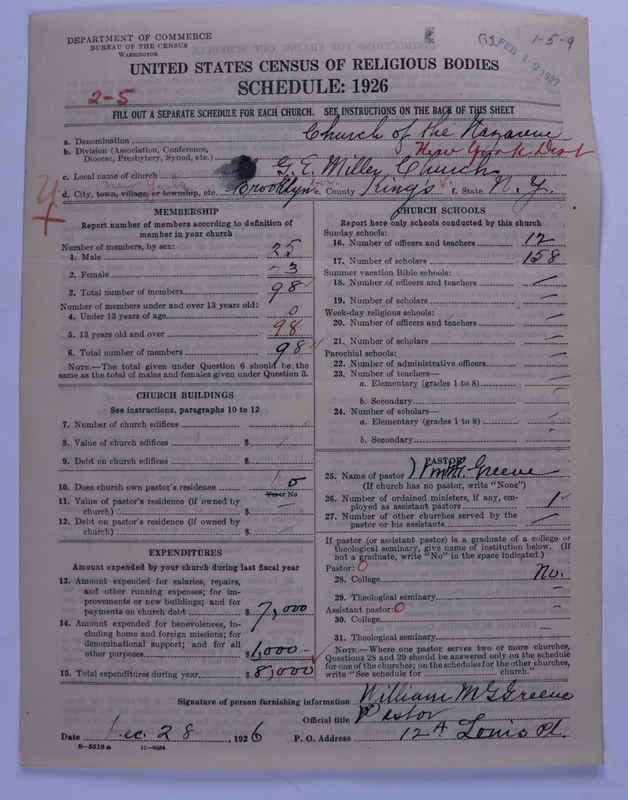 DEPARTMENT OF COMMERCE
BUREAU OF THE CENSUS
WASHINGTON
61 FEB 12 1927 1-5-9
UNITED STATES CENSUS OF RELIGIOUS BODIES
SCHEDULE: 1926
2-5
FILL OUT A SEPARATE SCHEDULE FOR EACH CHURCH. SEE INSTRUCTIONS ON THE BACK OF THIS SHEET
a. Denomination Church of the Nazarene
b. Division (Association, Conference, Diocese, Presbytery, Synod, etc.) New York Dist
c. Local name of church G. E. Miller Church
New York
d. City, town, village, or township, etc. Brooklyn e. County Kings i. State N. Y.
MEMBERSHIP
Report number of members according to definition of member in your church
Number of members, by sex:
1. Male 25
2. Female 73
3. Total number of members 98
Number of members under and over 13 years old:
4. Under 13 years of age 0
5. 13 years old and over 98
6. Total number of members 98
NOTE.—The total given under Question 6 should be the same as the total of males and females given under Question 3.
CHURCH BUILDINGS
See instructions, paragraphs 10 to 12
7. Number of church edifices
8. Value of church edifices $
9. Debt on church edifices $
10. Does church own pastor's residence No
Yes or No
11. Value of pastor's residence (if owned by church) $ —
12. Debt on pastor's residence (if owned by church) $ —
EXPENDITURES
Amount expended by your church during last fiscal year
13. Amount expended for salaries, repairs, and other running expenses; for improvements or new buildings; and for payments on church debt $ 7,000
14. Amount expended for benevolences, including home and foreign missions; for denominational support; and for all other purposes $ 1,000 -
15. Total expenditures during year $ 8,000
CHURCH SCHOOLS
Report here only schools conducted by this church
Sunday schools:
16. Number of officers and teachers 12
17. Number of scholars 158
Summer vacation Bible schools:
18. Number of officers and teachers —
19. Number of scholars —
Week-day religious schools:
20. Number of officers and teachers —
21. Number of scholars —
Parochial schools:
22. Number of administrative officers —
23. Number of teachers—
a. Elementary (grades 1 to 8) —
b. Secondary —
24. Number of scholars—
a. Elementary (grades 1 to 8) —
b. Secondary —
PASTOR
25. Name of pastor Greene
(If church has no pastor, write "None")
26. Number of ordained ministers, if any, employed as assistant pastors 1
27. Number of other churches served by the pastor or his assistants —
If pastor (or assistant pastor) is a graduate of a college or theological seminary, give name of institution below. (If not a graduate, write "No" in the space indicated.)
Pastor: 0
28. College No.
29. Theological seminary —
Assistant pastor: 0
30. College —
31. Theological seminary —
NOTE.—Where one pastor serves two or more churches, Questions 28 and 29 should be answered only on the schedule for one of the churches; on the schedules for the other churches, write "See schedule for church."
Signature of person furnishing information William M G Greene
Official title Pastor
Date Dec. 28, 1926 P. O. Address 12A Louis Pl.
6-5518a 11-9034